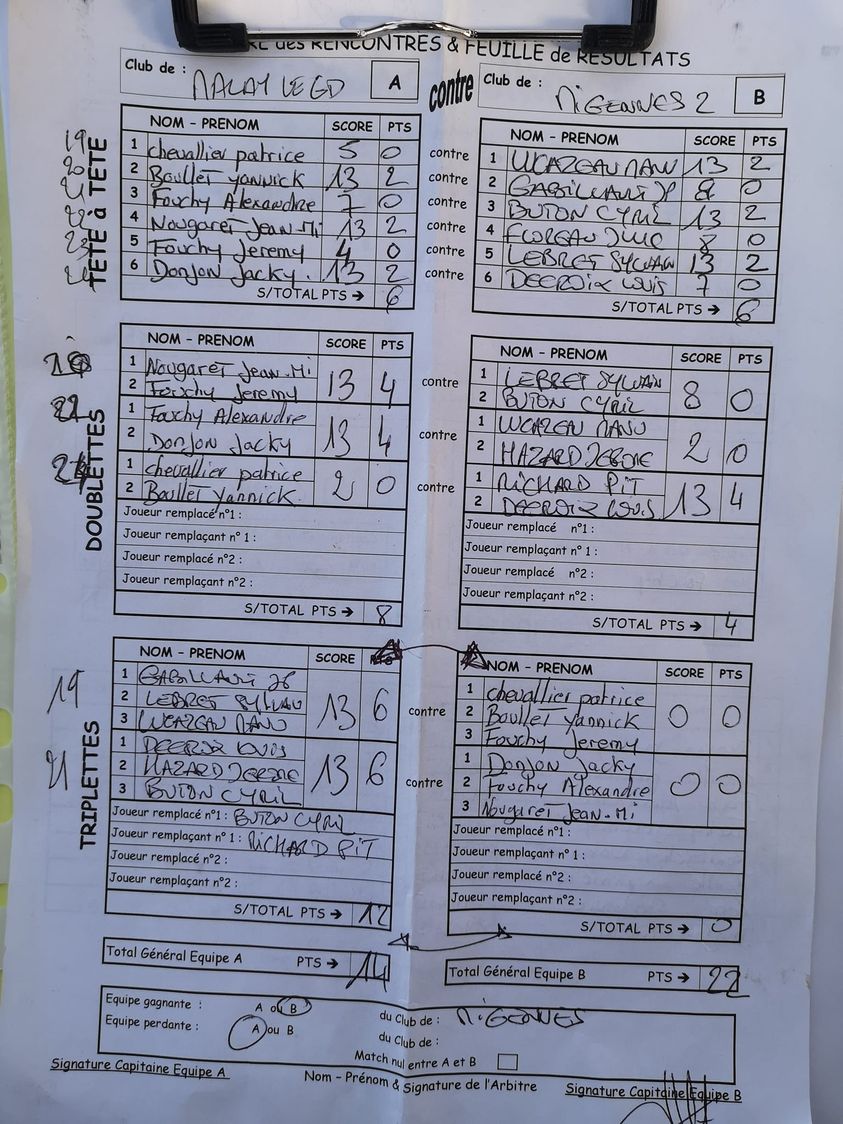 RE des RENCONTRES & FEUILLE de RESULTATS
Club de : MALAY LE GD A contre Club de : MIGENNES 2 B
TÊTE à TÊTE
19
20
21
22
23
24
NOM - PRENOM SCORE PTS
1 chevallier patrice 5 0
2 Boullet yannick 13 2
3 Fouchy Alexandre 7 0
4 Nougaret Jean-Mi 13 2
5 Fouchy Jeremy 4 0
6 Donjon Jacky. 13 2
S/TOTAL PTS → 6
contre
contre
contre
contre
contre
contre
NOM - PRENOM SCORE PTS
1 LUCAZEAU MANU 13 2
2 GABILLAUT JP 8 0
3 BUTON CYRIL 13 2
4 FLOREAU 8 0
5 LEBRET SYLVAIN 13 2
6 DECROIX LOUIS 7 0
S/TOTAL PTS → 6
DOUBLETTES
NOM - PRENOM SCORE PTS
1 Nougaret Jean-Mi
2 Fouchy Jeremy 13 4
1 Fouchy Alexandre
2 Donjon Jacky 13 4
1 chevallier patrice
2 Boullet yannick 2 0
Joueur remplacé n°1 :
Joueur remplaçant n° 1 :
Joueur remplacé n°2 :
Joueur remplaçant n°2 :
S/TOTAL PTS → 8
contre
contre
contre
NOM - PRENOM SCORE PTS
1 LEBRET SYLVAIN
2 BUTON CYRIL 8 0
1 LUCAZEAU MANU
2 HAZARD JEROME 2 0
1 RICHARD PIT
2 DECROIX LOUIS 13 4
Joueur remplacé n°1 :
Joueur remplaçant n° 1 :
Joueur remplacé n°2 :
Joueur remplaçant n°2 :
S/TOTAL PTS → 4
TRIPLETTES
19
21
NOM - PRENOM SCORE
1 GABILLAUT
2 LEBRET SYLVAIN
3 LUCAZEAU MANU 13 6
1 DECROIX LOUIS
2 HAZARD JEROME
3 BUTON CYRIL 13 6
Joueur remplacé n°1 : BUTON CYRIL
Joueur remplaçant n° 1 : RICHARD PIT
Joueur remplacé n°2 :
Joueur remplaçant n°2 :
S/TOTAL PTS → 12
contre
contre
NOM - PRENOM SCORE PTS
1 chevallier patrice
2 Boullet yannick
3 Fouchy Jeremy 0 0
1 Donjon Jacky
2 Fouchy Alexandre
3 Nougaret Jean-Mi 0 0
Joueur remplacé n°1 :
Joueur remplaçant n°1 :
Joueur remplacé n°2 :
Joueur remplaçant n°2 :
S/TOTAL PTS → 0
Total Général Equipe A PTS → 14
Total Général Equipe B PTS → 22
Equipe gagnante : A ou B du Club de : MIGENNES
Equipe perdante : A ou B du Club de :
Match nul entre A et B
Signature Capitaine Equipe A Nom - Prénom & Signature de l'Arbitre Signature Capitaine Equipe B